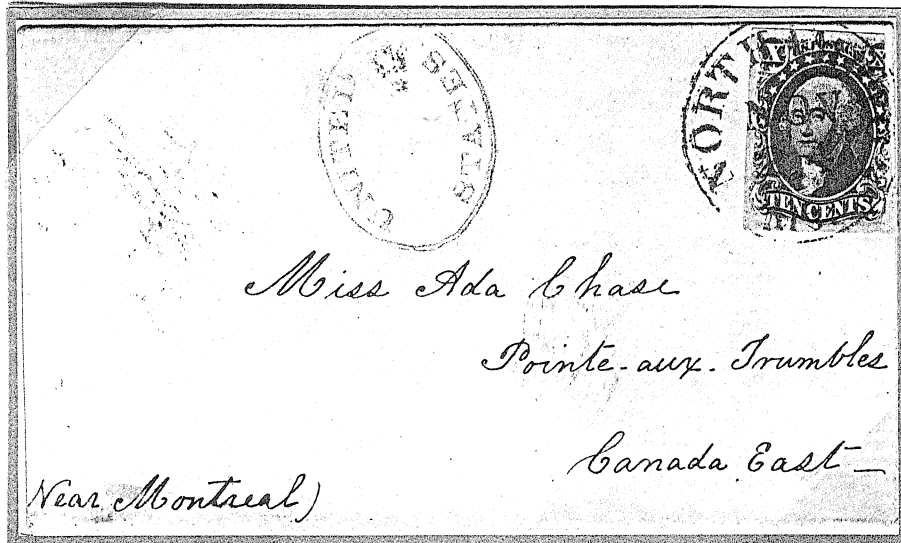 UNITED STATES
NORTH
TEN CENTS
Miss Ada Chase
Pointe-aux-Trumbles
Canada East_
(Near Montreal)